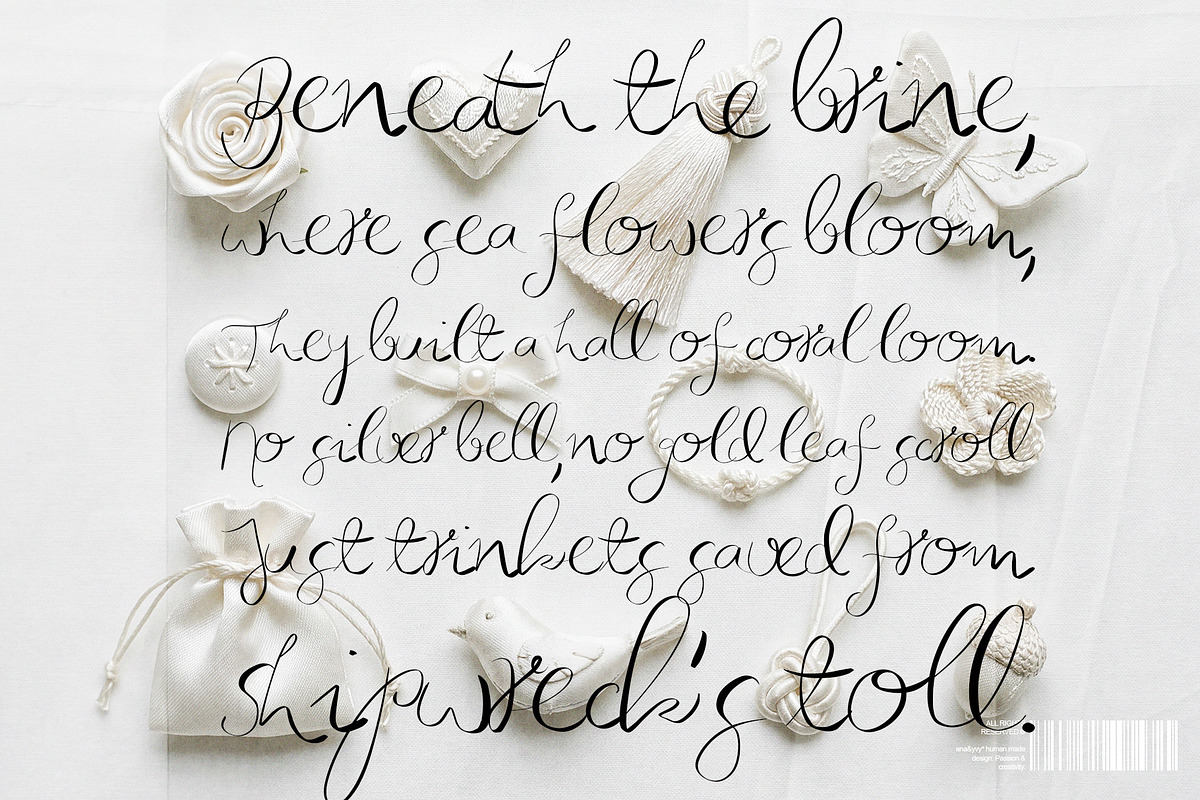 Beneath the brine,
where sea flowers bloom,
They built a hall of coral loom.
No silver bell, no gold leaf scroll
Just trinkets saved from
shipwreck's toll.
ALL RIGHT
RESERVED
ana&yvy® human made
design. Passion &
creativity.